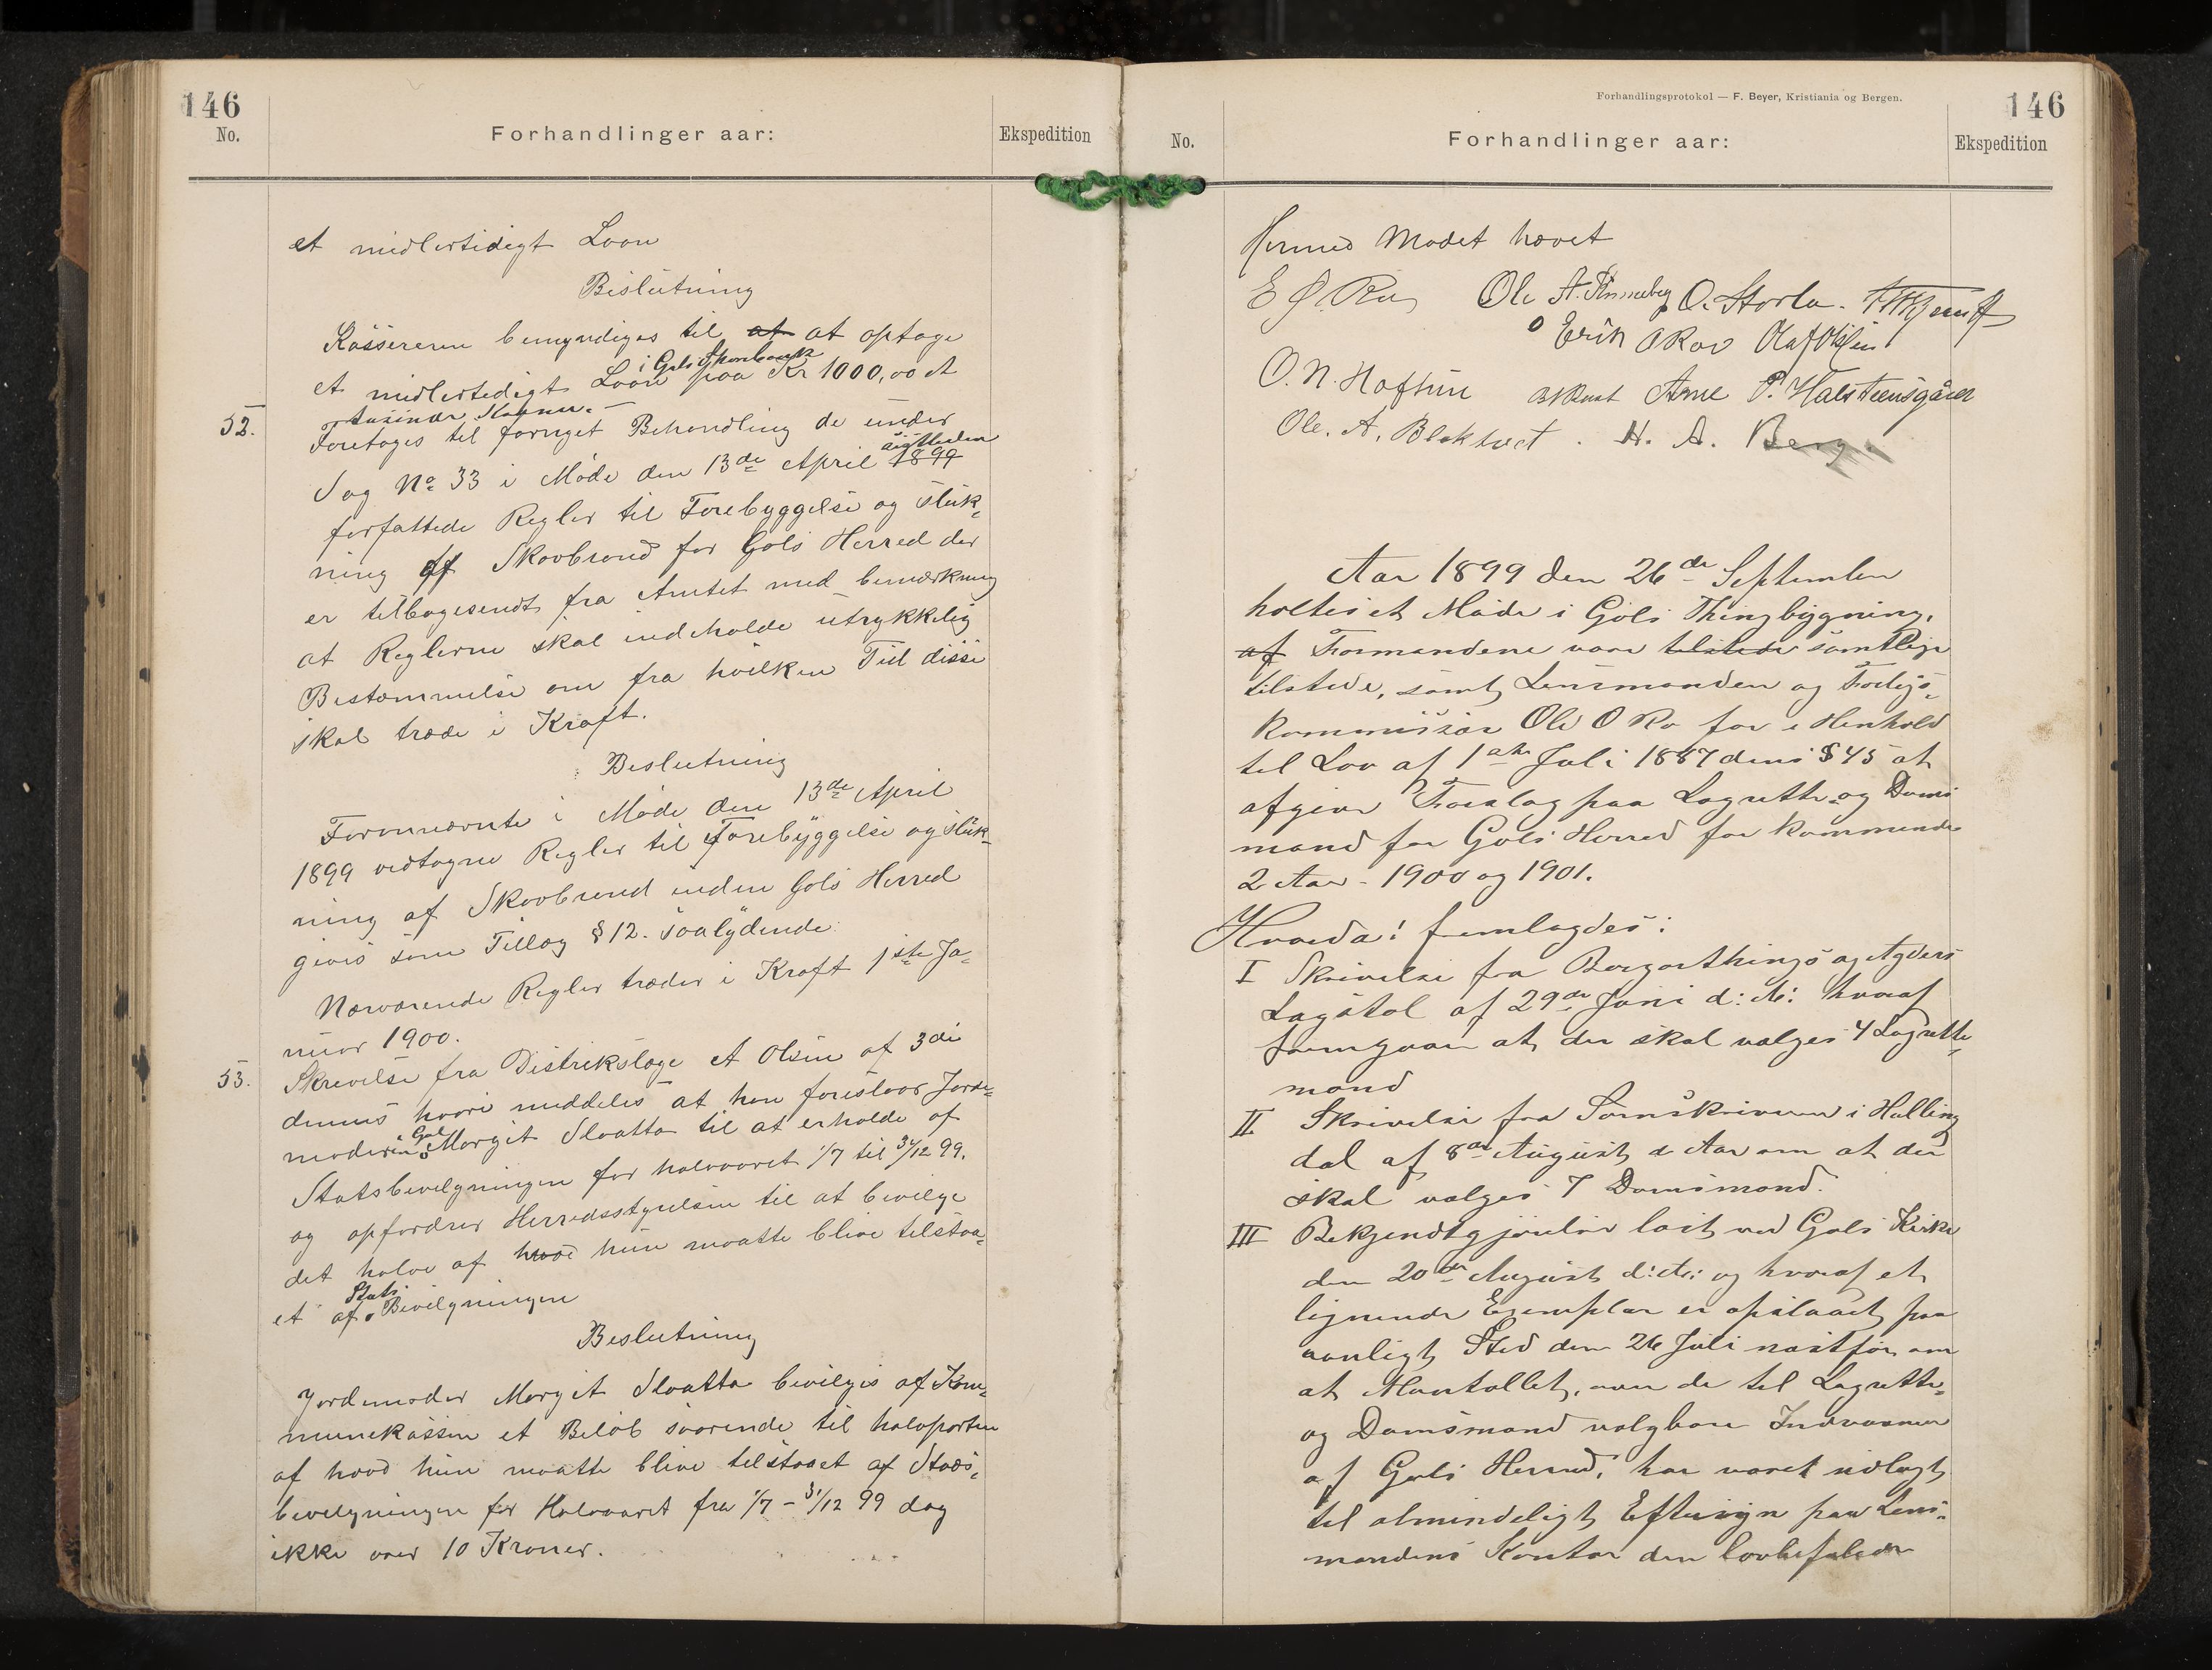 146
No.
Forhandlinger aar:
Ekspedition
et midlertidigt Laan
Beslutning
Kassereren bemyndiges til at at optage
i Gols Sparebank
et midlertedigt Laan paa Kr 1000,00 et
tusinde Kroner. —
52.
Foretoges til fornyet Behandling de under
Sag No 33 i Møde den 13de April 1899
forfattede Regler til Forebyggelse og sluk-
ning af Skovbrand for Gols Herred der
er tilbagesendt fra Amtet med bemærkning
at Reglerne skal indeholde utrykkelig
Bestemmelse om fra hvilken Tid disse
skal træde i Kraft.
Beslutning
Fornævnte i Møde den 13de April
1899 vedtagne Regler til Forebyggelse og sluk-
ning af Skovbrand inden Gols Herred
gives som Tillæg § 12. saalydende
Nærværende Regler træder i Kraft 1ste Ja-
nuar 1900.
53.
Skrivelse fra Distrikslæge A Olsen af 3die
dennes hvori meddeles at han foreslaar Jorde-
i Gol
moderen Margit Slaatta til at erholde af
Statsbevilgningen for halvaaret 1/7 til 31/12 99.
og opfordrer Herredsstyrelsen til at bevilge
det halve af hvad hun maatte blive tilstaa-
Stats
et af Bevilgningen
Beslutning
Jordemoder Margit Slaatta bevilges af Kom-
munekassen et Beløb svarende til halvparten
af hvad hun maatte blive tilstaaet af Stads-
bevilgningen for Halvaaret fra 1/7 – 31/12 99 dog
ikke over 10 Kroner.
Forhandlingsprotokol — F. Beyer, Kristiania og Bergen.
146
No.
Forhandlinger aar:
Ekspedition
Hermed Mødet hævet
Ole A. O. Storla.
Erik ORov Olaf Olsen
O. N. Haftun Arne P. Halsteensgård
Ole. A. Blaktvedt. H. A. Berg.
Aar 1899 den 26de September
holtes et Møde i Gols Thingbygning.
af Formændene vare tilstede samtlige
tilstede, samt Lensmanden og Forligs-
kommissær Ole O Ro for i Henhold
til Lov af 1ste Juli 1887 dens § 45 at
afgive Forslag paa Lagrette- og Doms
mænd for Gols Herred for kommende
2 Aar - 1900 og 1901.
Hvorda! fremlagdes:
I Skrivelse fra Borgarthings og Agders
Lagstol af 29de Juni d: A: hvoraf
fremgaar at der skal vælges 4 Lagrette-
mænd
II Skrivelse fra Sorenskriveren i Halling
dal af 8de August d Aar om at der
skal vælges 7 Domsmænd.
III Bekjendtgjørelse læst ved Gols Kirke
den 20de August d: A: og hvoraf et
lignende Exemplar er opslaaet paa
vanligt Sted den 26 Juli næstfør om
at Mantallet, over de til Lagrette-
og Domsmænd valgbare Indvaanere
af Gols Herred, har været udlagt
til almindeligt Eftersyn paa Lens-
mandens Kontor den lovbefalede